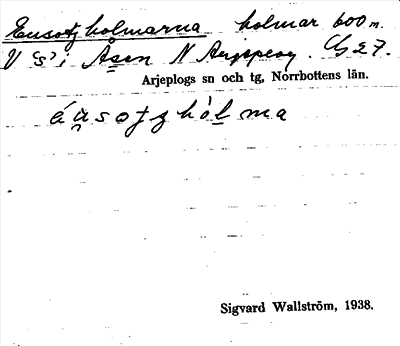 Eusotjholmarna holmar 600 m.
V S i Åsen N Arjeplog. Cg 27.
Arjeplogs sn och tg, Norrbottens län.
áu̯sotjhòl̲ma
Sigvard Wallström, 1938.